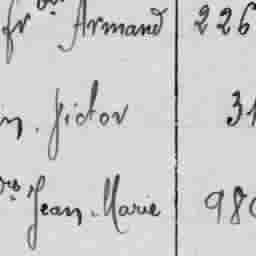 fr Armand 226
Victor 31
Jean Marie 980